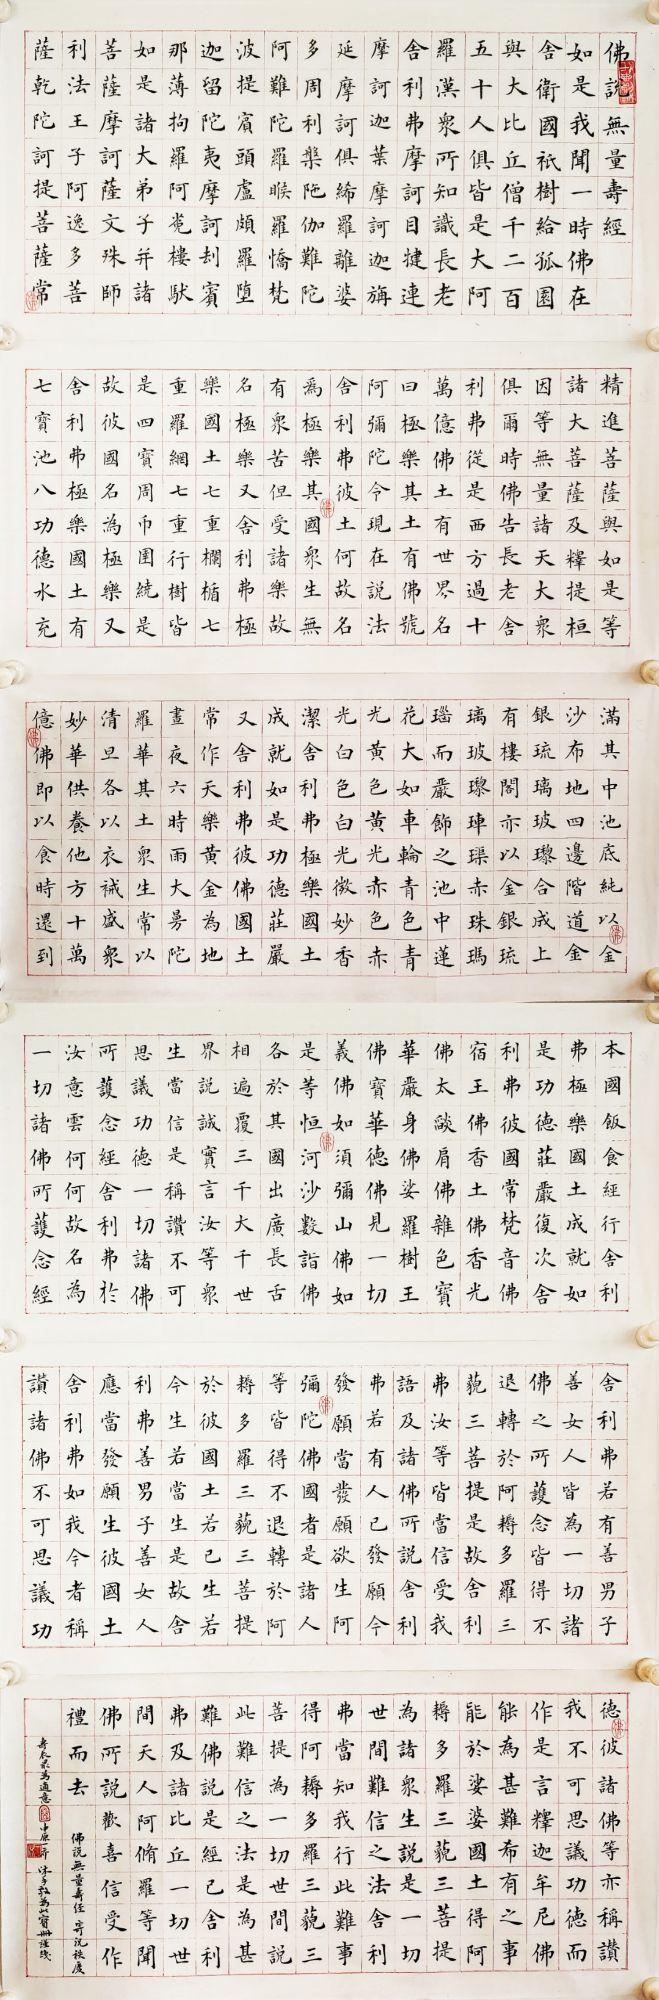 佛説無量壽經
如是我聞一時佛在
舍衛國祇樹給孤園
與大比丘僧千二百
五十人俱皆是大阿
羅漢衆所知識長老
舍利弗摩訶目犍連
摩訶迦葉摩訶迦旃
延摩訶俱絺羅離婆
多周利槃陁伽難陀
阿難陀羅睺羅憍梵
波提賓頭盧頗羅堕
迦留陀夷摩訶刦賓
那薄拘羅阿㝹樓馱
如是諸大弟子并諸
菩薩摩訶薩文殊師
利法王子阿逸多菩
薩乾陀訶提菩薩常
精進菩薩與如是等
諸大菩薩及釋提桓
因等無量諸天大衆
俱爾時佛告長老舍
利弗從是西方過十
萬億佛土有世界名
曰極樂其土有佛號
阿彌陀今現在説法
舍利弗彼土何故名
爲極樂其國衆生無
有衆苦但受諸樂故
名極樂又舍利弗極
樂國土七重欄楯七
重羅網七重行樹皆
是四寳周帀圍繞是
故彼國名為極樂又
舍利弗極樂國土有
七寳池八功德水充
滿其中池底純以金
沙布地四邊階道金
銀琉璃玻瓈合成上
有樓閣亦以金銀琉
璃玻瓈硨磲赤珠瑪
瑙而嚴飾之池中蓮
花大如車輪青色青
光黃色黃光赤色赤
光白色白光微妙香
潔舍利弗極樂國土
成就如是功德莊嚴
又舍利弗彼佛國土
常作天樂黃金為地
晝夜六時雨大曼陀
羅華其土衆生常以
清旦各以衣祴盛衆
妙華供養他方十萬
億佛即以食時還到
本國飯食經行舍利
弗極樂國土成就如
是功德莊嚴復次舍
利弗彼國常梵音佛
宿王佛香土佛香光
佛太燄肩佛雜色寶
華嚴身佛娑羅樹王
佛寶華德佛見一切
義佛如須彌山佛如
是等恒河沙數諸佛
各於其國出廣長舌
相遍覆三千大千世
界説誠實言汝等衆
生當信是稱讚不可
思議功德一切諸佛
所護念經舍利弗於
汝意雲何何故名為
一切諸佛所護念經
舍利弗若有善男子
善女人皆為一切諸
佛之所護念皆得不
退轉於阿耨多羅三
藐三菩提是故舍利
弗汝等皆當信受我
語及諸佛所説舍利
弗若有人已發願今
發願當發願欲生阿
彌陀佛國者是諸人
等皆得不退轉於阿
耨多羅三藐三菩提
於彼國土若已生若
今生若當生是故舍
利弗善男子善女人
應當發願生彼國土
舍利弗如我今者稱
讚諸佛不可思議功
德彼諸佛等亦稱讚
我不可思議功德而
作是言釋迦牟尼佛
能為甚難希有之事
能於娑婆國土得阿
耨多羅三藐三菩提
為諸衆生説是一切
世間難信之法舍利
弗當知我行此難事
得阿耨多羅三藐三
菩提為一切世間説
此難信之法是為甚
難佛説是經已舍利
弗及諸比丘一切世
間天人阿脩羅等聞
佛所説歡喜信受作
禮而去
佛說無量壽經